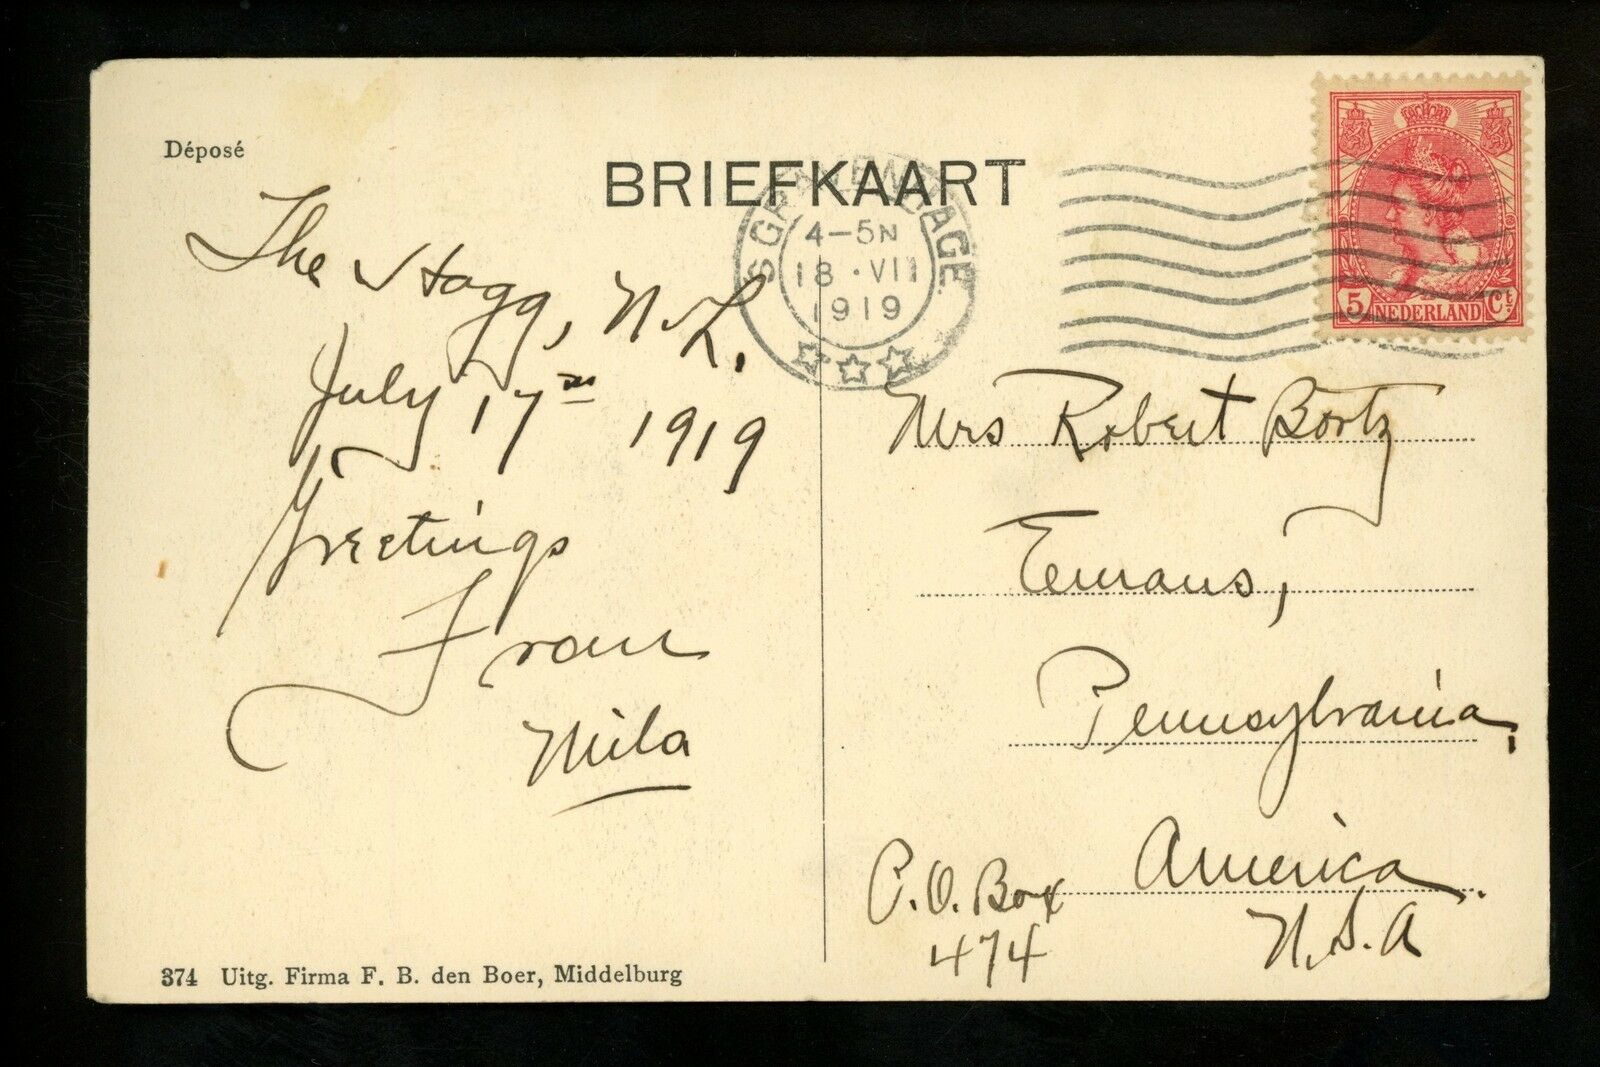 Déposé
BRIEFKAART
'SGRAVENHAGE
4-5N
18·VII
1919
5 NEDERLAND Ct
The Hagg, N.L.
July 17th 1919
Greetings
From
Mila
Mrs Robert Bortz
Emaus,
Pennsylvania,
America.
P.O. Box
474
U.S.A
374 Uitg. Firma F. B. den Boer, Middelburg